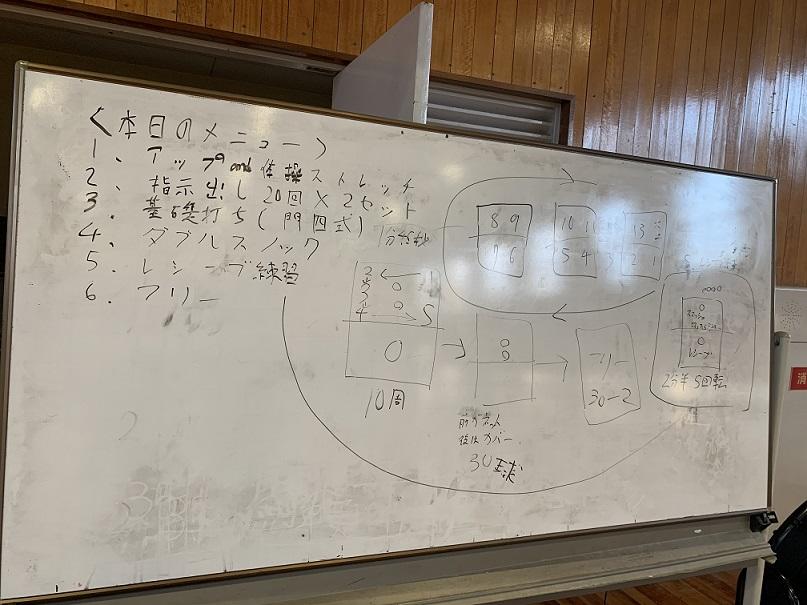 <本日のメニュー>
1、アップand体操ストレッチ
2、指示出し20回×2セット
3、基礎打ち(門四式)
4、ダブルスノック
5、レシーブ練習
6、フリー
8 9
7 6
10 11
5 4
13 12
2 1
1
5
0
10周
8
フリー
30-2
前がネット
後はカバー
30球
0
0
レシーブ
2分半 5回転
消